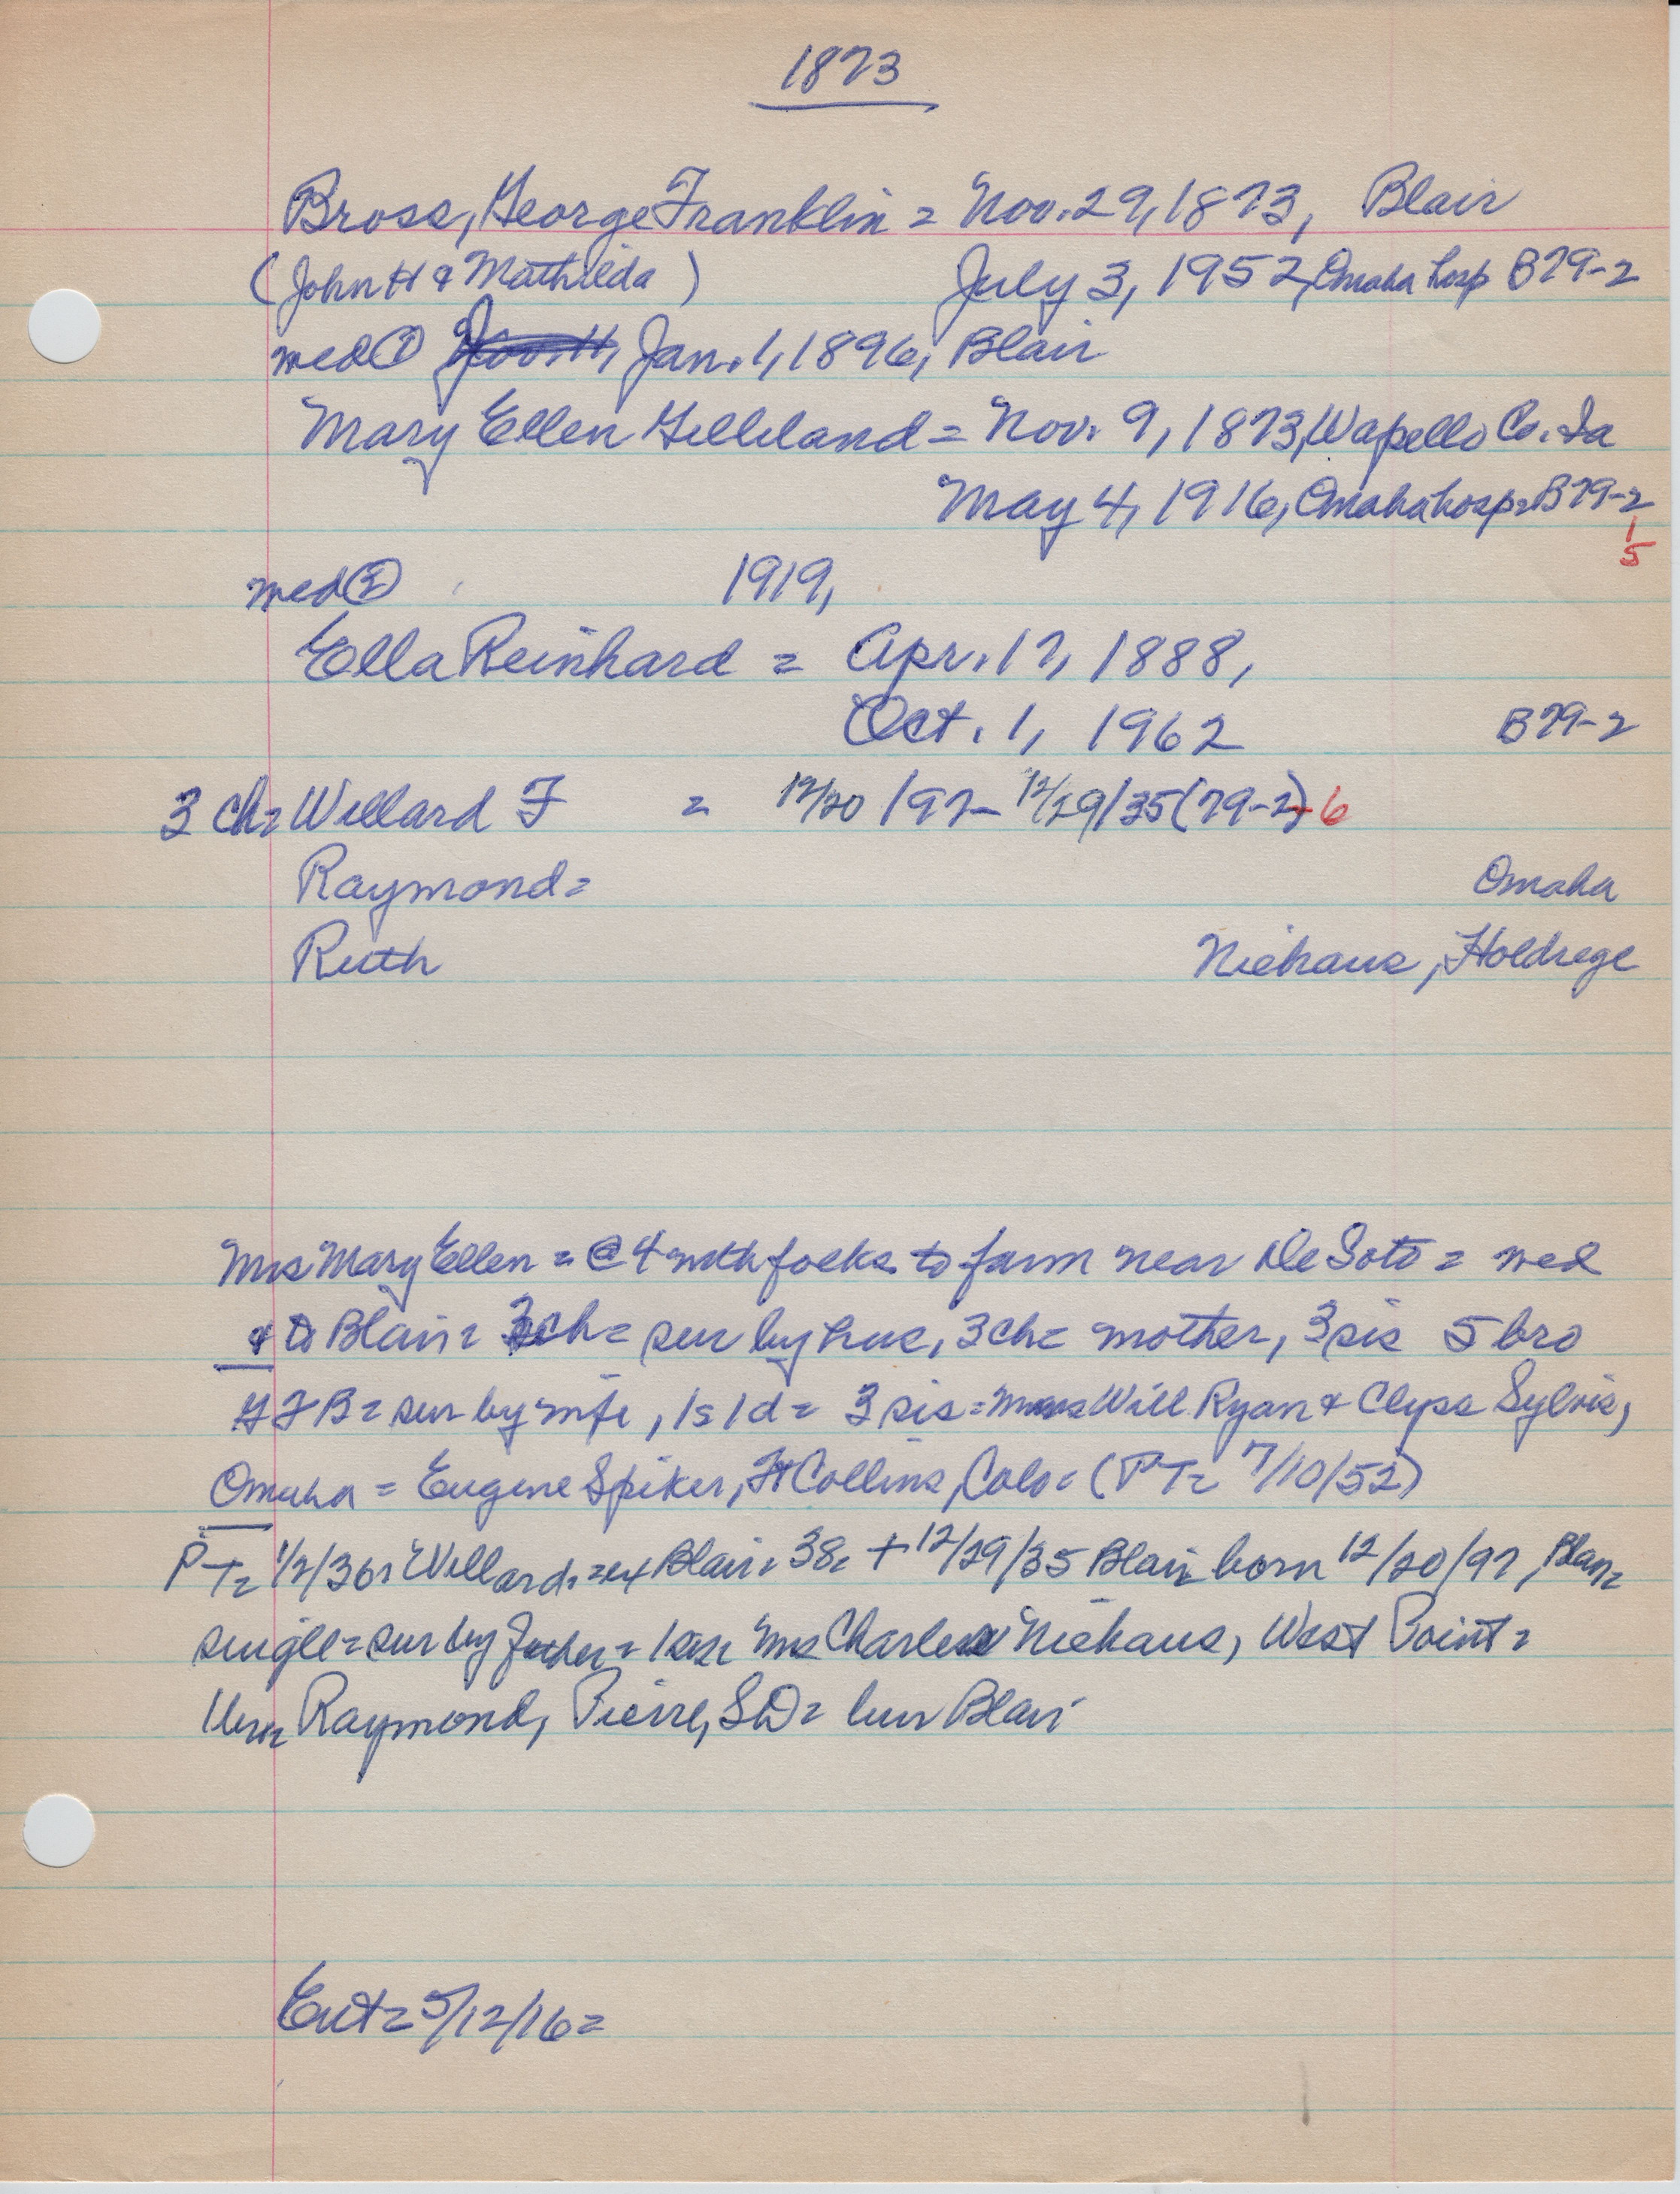 1873
Bross, George Franklin = Nov. 29, 1873, Blair
(John H & Mathilda) July 3, 1952, Omaha hosp B79-2
med ① Jan. 1, 1896, Blair
Mary Ellen Gilleland = Nov. 9, 1873, Wapello Co. Ia
May 4, 1916, Omaha hosp = B79-2
1
5
med ② 1919,
Ella Reinhard = Apr. 17, 1888,
Oct. 1, 1962 B79-2
3 ch = Willard F = 12/20/97 - 12/29/35 (79-2) - 6
Raymond = Omaha
Ruth Niehaus, Holdrege
Mrs Mary Ellen = @ 4 with folks to farm near De Soto = med
& to Blair = 3ch = sur by hus, 3 ch = mother, 3 sis 5 bro
GFB = sur by wife, 1s 1d = 3 sis = Will Ryan & Clyss Sylvis,
Omaha = Eugene Spiker, Ft Collins, Colo = (PT = 7/10/52)
PT = 1/2/36 = Willard = Blair = 38 = + 12/29/35 Blair born 12/20/97, Blair =
single = sur by father = 1 sis = Mrs Charles Niehaus, West Point =
1 bro = Raymond, Pierre, SD = bur Blair
Ent = 5/12/16 =